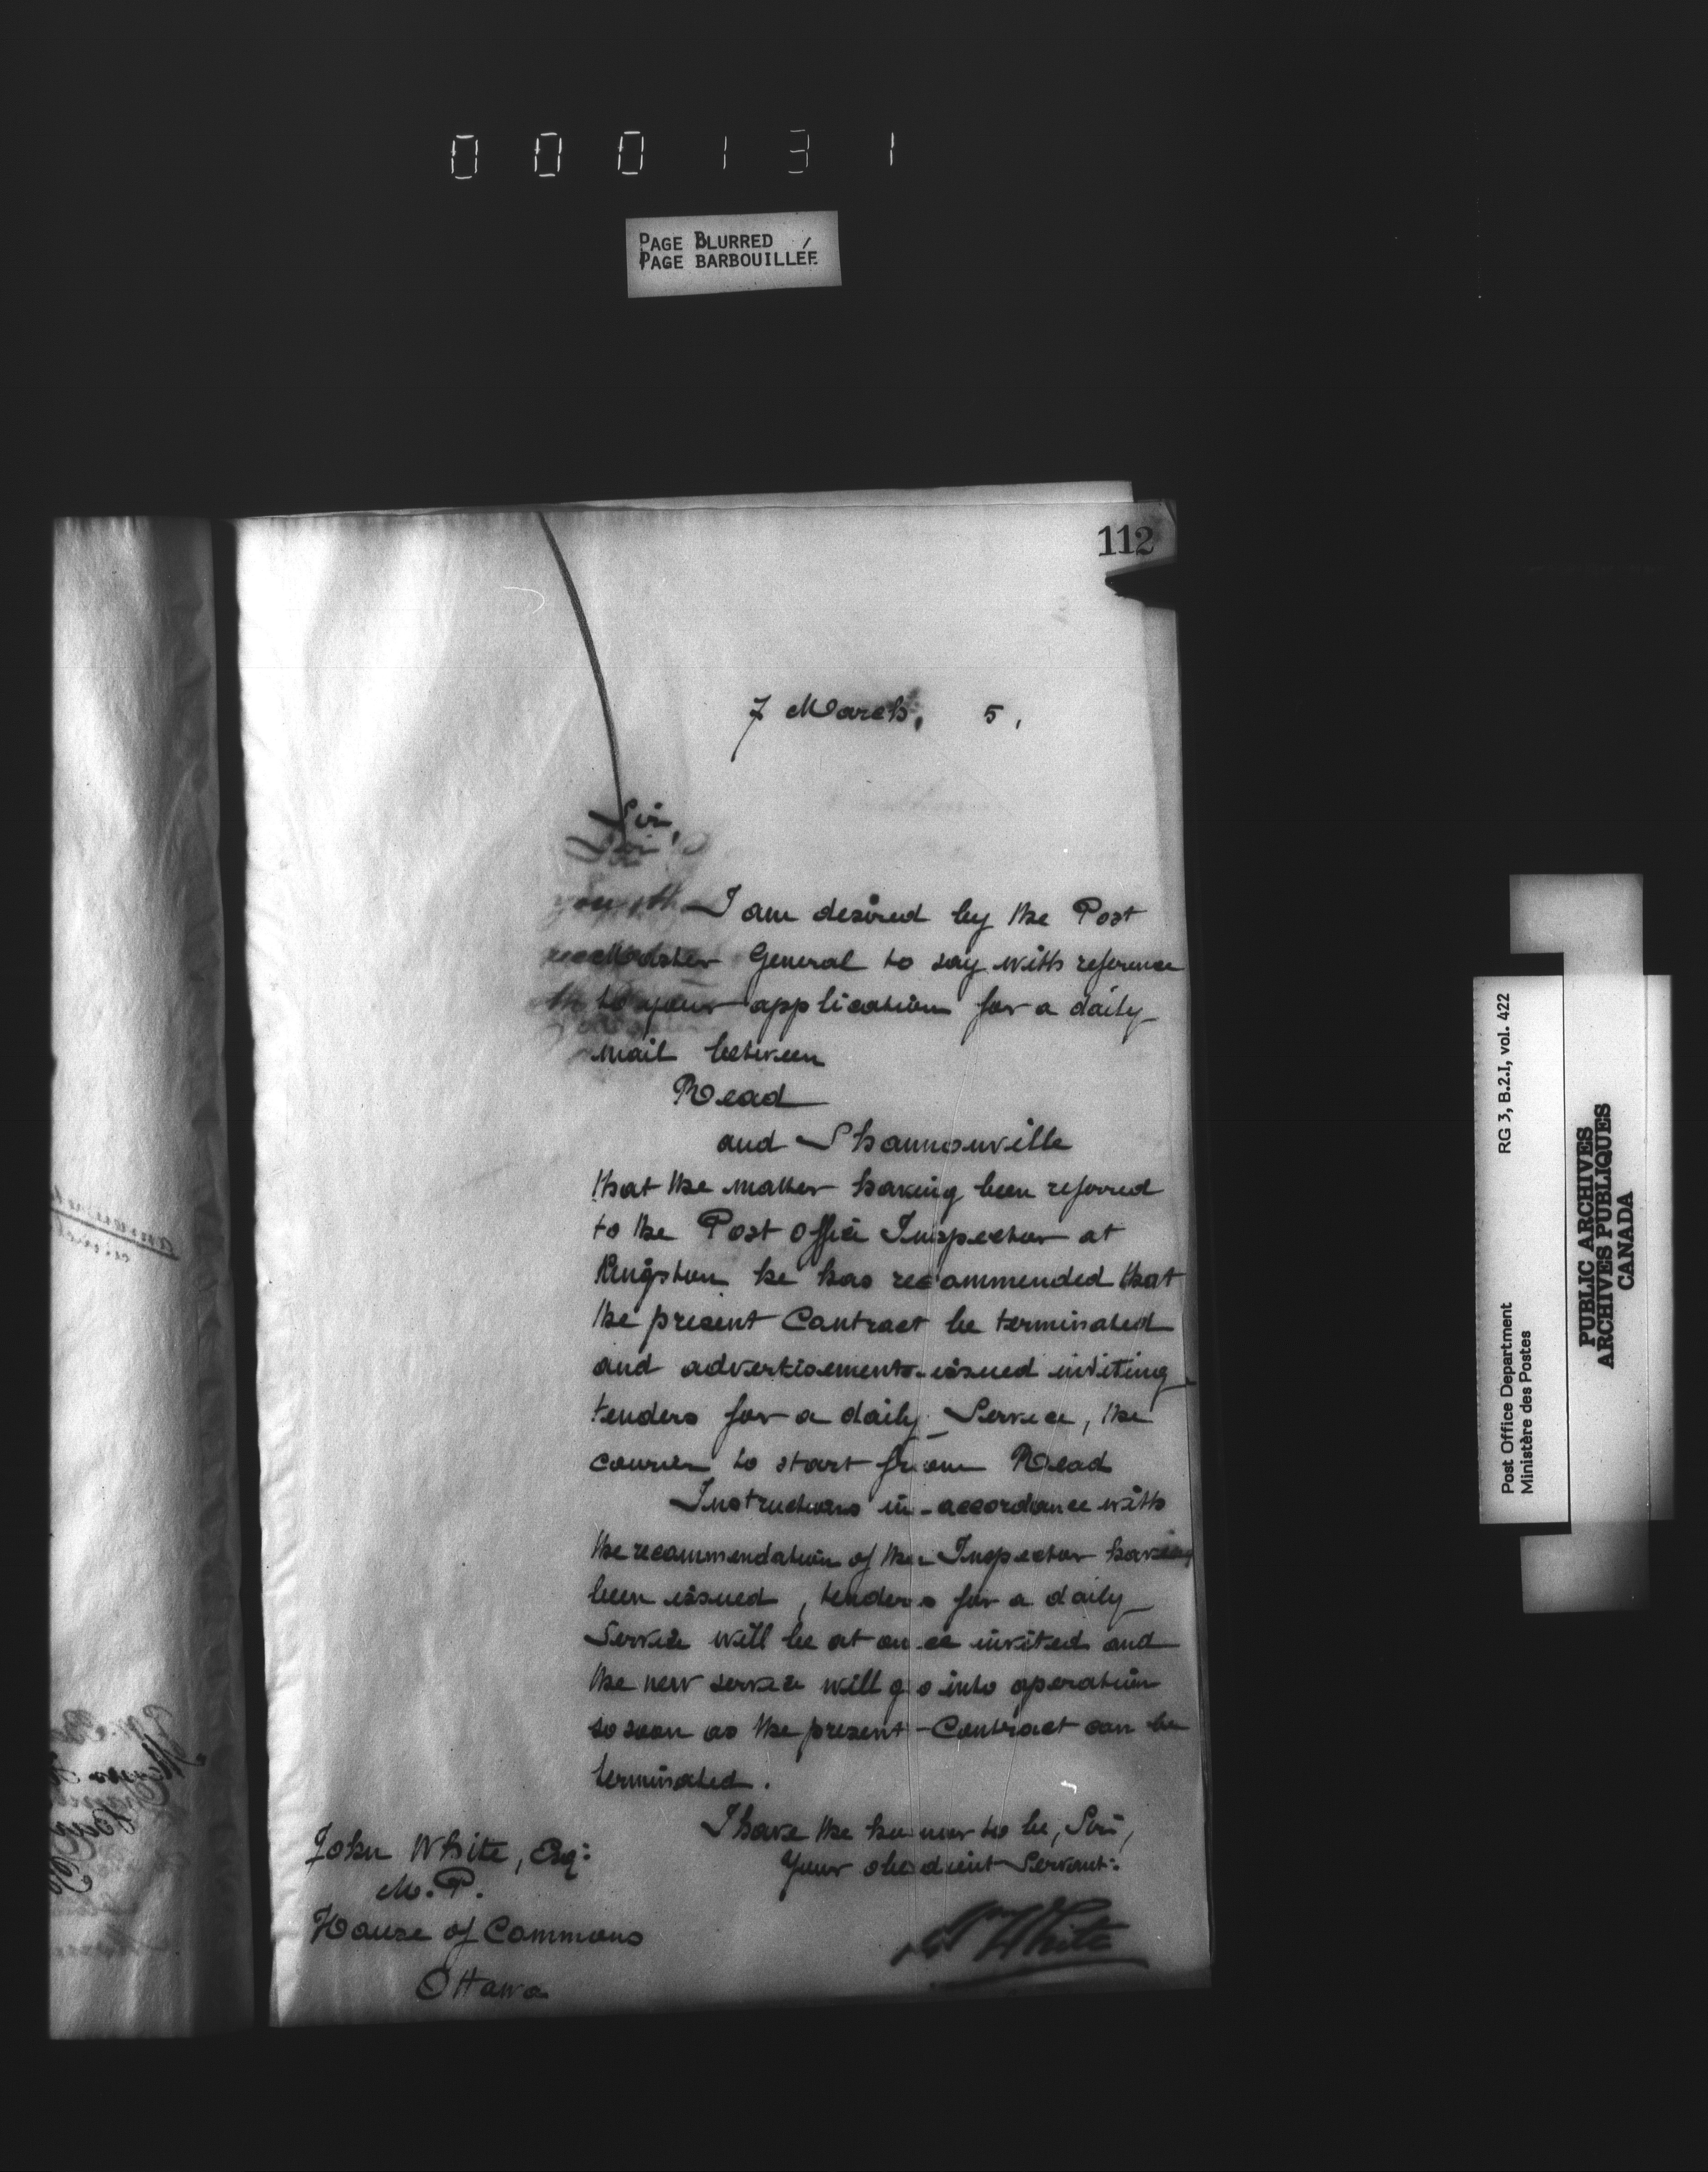 000131
PAGE BLURRED
PAGE BARBOUILLÉE
112
7 March, 5,
Sir,
I am desired by the Post
Master General to say with reference
to your application for a daily
mail between
Read
and Shannonville
that the matter having been referred
to the Post Office Inspector at
Kingston he has recommended that
the present Contract be terminated
and advertisements issued inviting
tenders for a daily Service, the
courier to start from Read
Instructions in accordance with
the recommendation of the Inspector having
been issued, tenders for a daily
Service will be at once invited and
the new service will go into operation
so soon as the present Contract can be
terminated.
I have the honor to be, Sir,
Your obedient Servant:
Wm White
John White, Esq:
M.P.
House of Commons
Ottawa
RG 3, B.2.I, vol. 422
Post Office Department
Ministère des Postes
PUBLIC ARCHIVES
ARCHIVES PUBLIQUES
CANADA